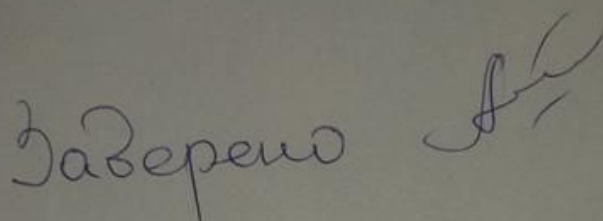 Заверено